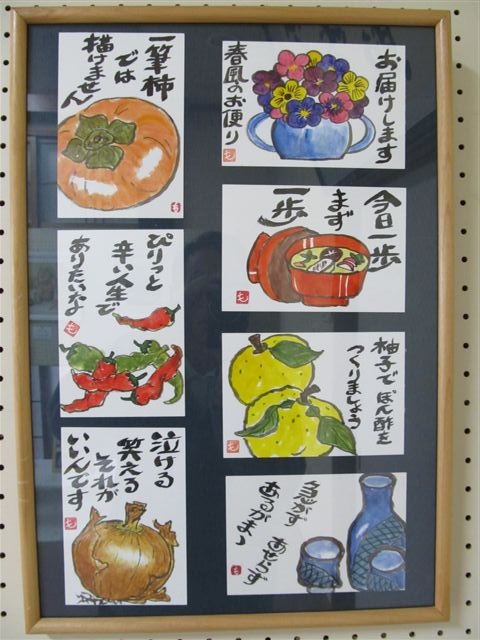 一筆柿
では
描けません
お届けします
春風のお便り
今日一歩
まず
一歩
ぴりっと
辛い人生で
ありたいなぁ
柚子でぽん酢を
つくりましょう
泣ける
笑える
それが
いいんです
急がず
あせらず
あるがまゝ